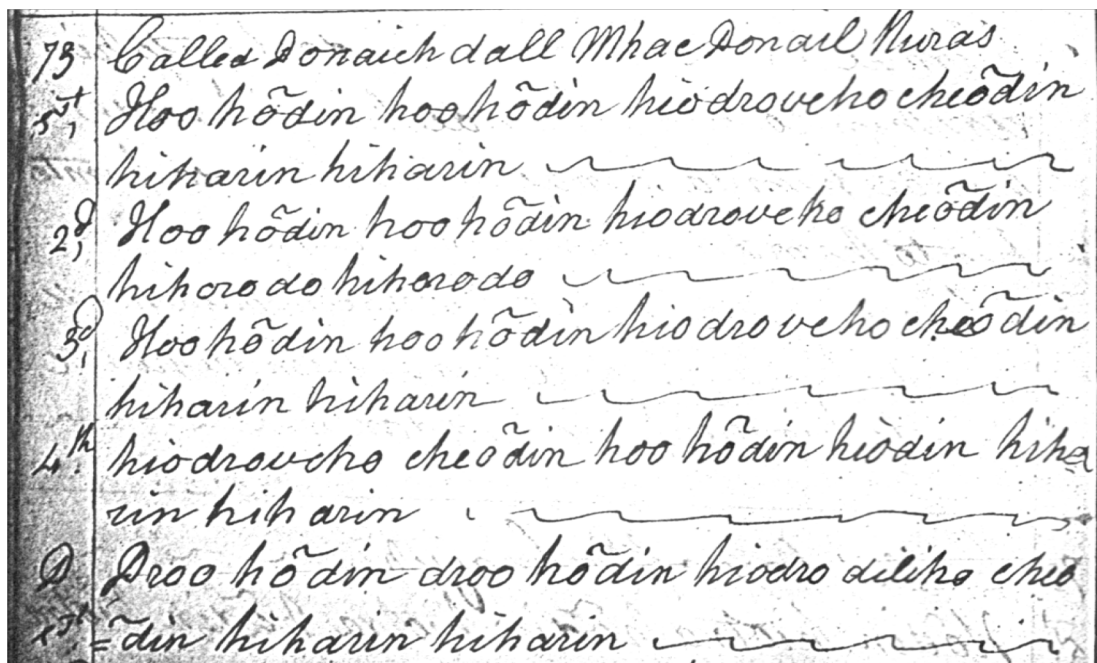 73 Called Donaich dall Mhac Donail Nuras
1st, Hoo hõdin hoo hõdin hiodroveho cheõdin
hiharin hiharin
2d, Hoo hõdin hoo hõdin hiodroveho cheõdin
hihorodo hihorodo
3d, Hoo hõdin hoo hõdin hiodroveho cheõdin
hiharin hiharin
4th, hiodroveho cheõdin hoo hõdin hiodin hiha
rin hiharin
D Droo hõdin droo hõdin hiodro diliho cheo
1st =õdin hiharin hiharin